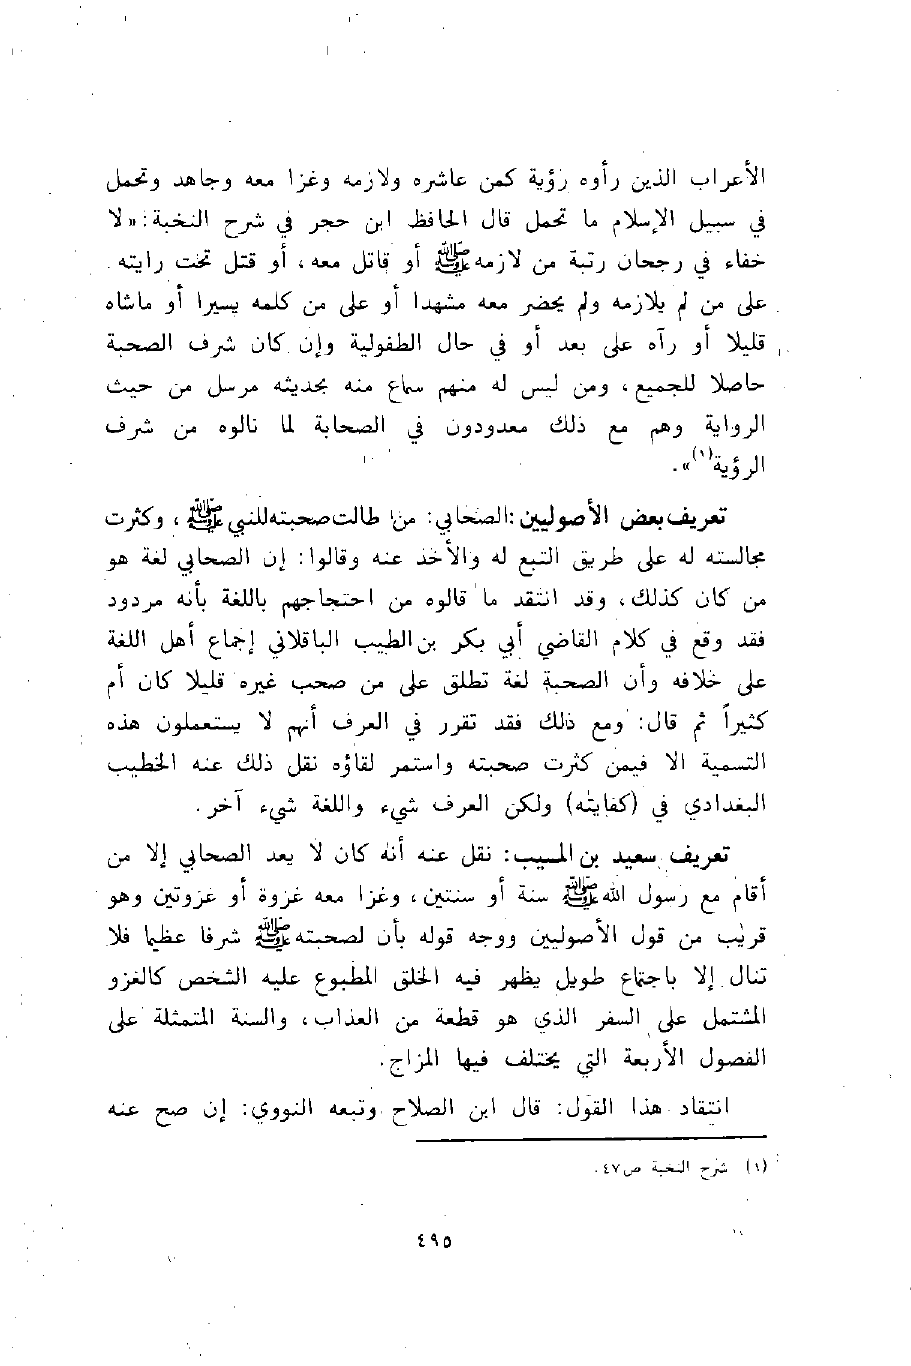 الأعراب الذين رأوه رؤية كمن عاشره ولازمه وغزا معه وجاهد وتحمل
في سبيل الإسلام ما تحمل قال الحافظ ابن حجر في شرح النخبة: «لا
خفاء في رجحان رتبة من لازمه ﷺ أو قاتل معه، أو قتل تحت رايته
على من لم يلازمه ولم يحضر معه مشهدا أو على من كلمه يسيرا أو ماشاه
قليلا أو رآه على بعد أو في حال الطفولية وإن كان شرف الصحبة
حاصلا للجميع، ومن ليس له منهم سماع منه بحديثه مرسل من حيث
الرواية وهم مع ذلك معدودون في الصحابة لما نالوه من شرف
الرؤية(١)».
تعريف بعض الأصوليين: الصحابي: من طالت صحبته للنبي ﷺ، وكثرت
مجالسته له على طريق التبع له والأخذ عنه وقالوا: إن الصحابي لغة هو
من كان كذلك، وقد انتقد ما قالوه من احتجاجهم باللغة بأنه مردود
فقد وقع في كلام القاضي أبي بكر بن الطيب الباقلاني إجماع أهل اللغة
على خلافه وأن الصحبة لغة تطلق على من صحب غيره قليلا كان أم
كثيراً ثم قال: ومع ذلك فقد تقرر في العرف أنهم لا يستعملون هذه
التسمية الا فيمن كثرت صحبته واستمر لقاؤه نقل ذلك عنه الخطيب
البغدادي في (كفايته) ولكن العرف شيء واللغة شيء آخر.
تعريف سعيد بن المسيب: نقل عنه أنه كان لا يعد الصحابي إلا من
أقام مع رسول الله ﷺ سنة أو سنتين، وغزا معه غزوة أو غزوتين وهو
قريب من قول الأصوليين ووجه قوله بأن لصحبته ﷺ شرفا عظيما فلا
تنال إلا باجتماع طويل يظهر فيه الخلق المطبوع عليه الشخص كالغزو
المشتمل على السفر الذي هو قطعة من العذاب، والسنة المتمثلة على
الفصول الأربعة التي يختلف فيها المزاج.
انتقاد هذا القول: قال ابن الصلاح وتبعه النووي: إن صح عنه
(١) شرح النخبة ص٤٧.
٤٩٥